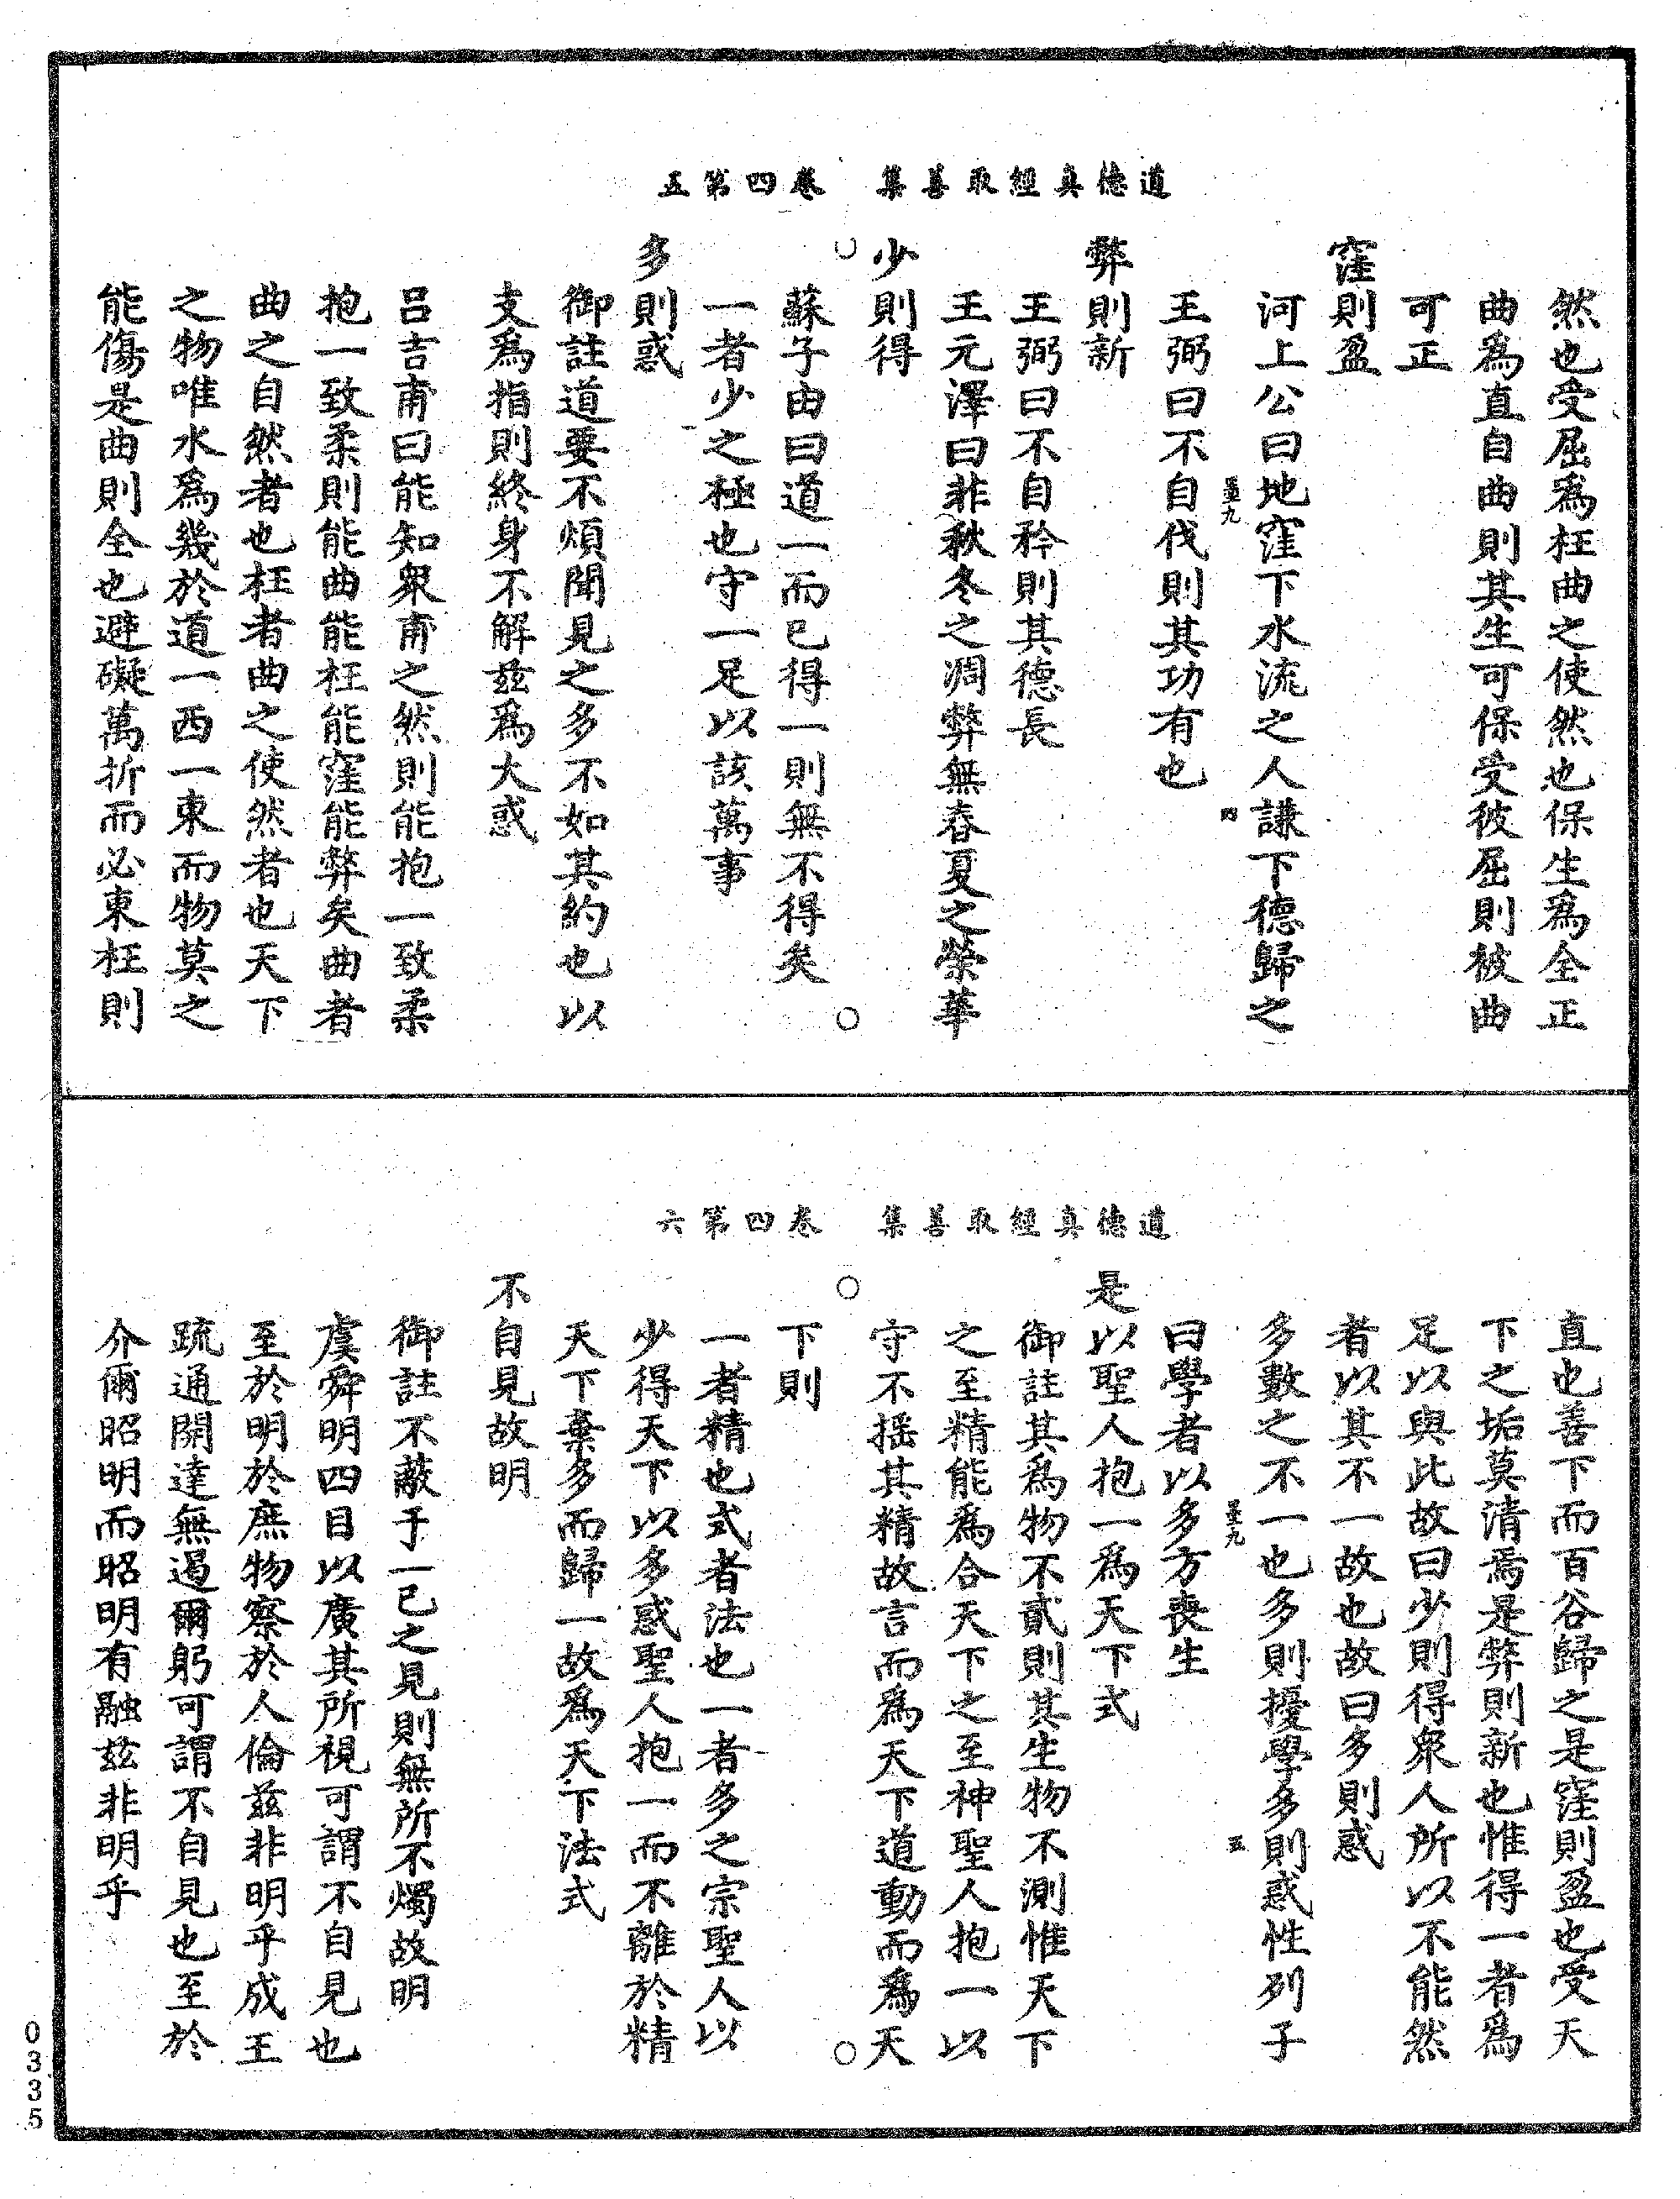 道德真經取善集　卷四第五
然也受屈爲枉曲之使然也保生爲全正
曲爲直自曲則其生可保受彼屈則被曲
可正
窪則盈
河上公曰地窪下水流之人謙下德歸之
王弼曰不自伐則其功有也
弊則新
王弼曰不自矜則其德長
王元澤曰非秋冬之凋弊無春夏之榮華
少則得
蘇子由曰道一而已得一則無不得矣
一者少之極也守一足以該萬事
多則惑
御註道要不煩聞見之多不如其約也以
支爲指則終身不解兹爲大惑
呂吉甫曰能知衆甫之然則能抱一致柔
抱一致柔則能曲能枉能窪能弊矣曲者
曲之自然者也枉者曲之使然者也天下
之物唯水爲幾於道一西一東而物莫之
能傷是曲則全也避礙萬折而必東枉則
道德真經取善集　卷四第六
直也善下而百谷歸之是窪則盈也受天
下之垢莫清焉是弊則新也惟得一者爲
足以與此故曰少則得衆人所以不能然
者以其不一故也故曰多則惑
多數之不一也多則擾學多則惑性列子
曰學者以多方喪生
是以聖人抱一爲天下式
御註其爲物不貳則其生物不測惟天下
之至精能爲合天下之至神聖人抱一以
守不摇其精故言而爲天下道動而爲天
下則
一者精也式者法也一者多之宗聖人以
少得天下以多惑聖人抱一而不離於精
天下棄多而歸一故爲天下法式
不自見故明
御註不蔽于一己之見則無所不燭故明
虞舜明四目以廣其所視可謂不自見也
至於明於庶物察於人倫兹非明乎成王
疏通開達無遏爾躬可謂不自見也至於
介爾昭明而昭明有融兹非明乎
0335